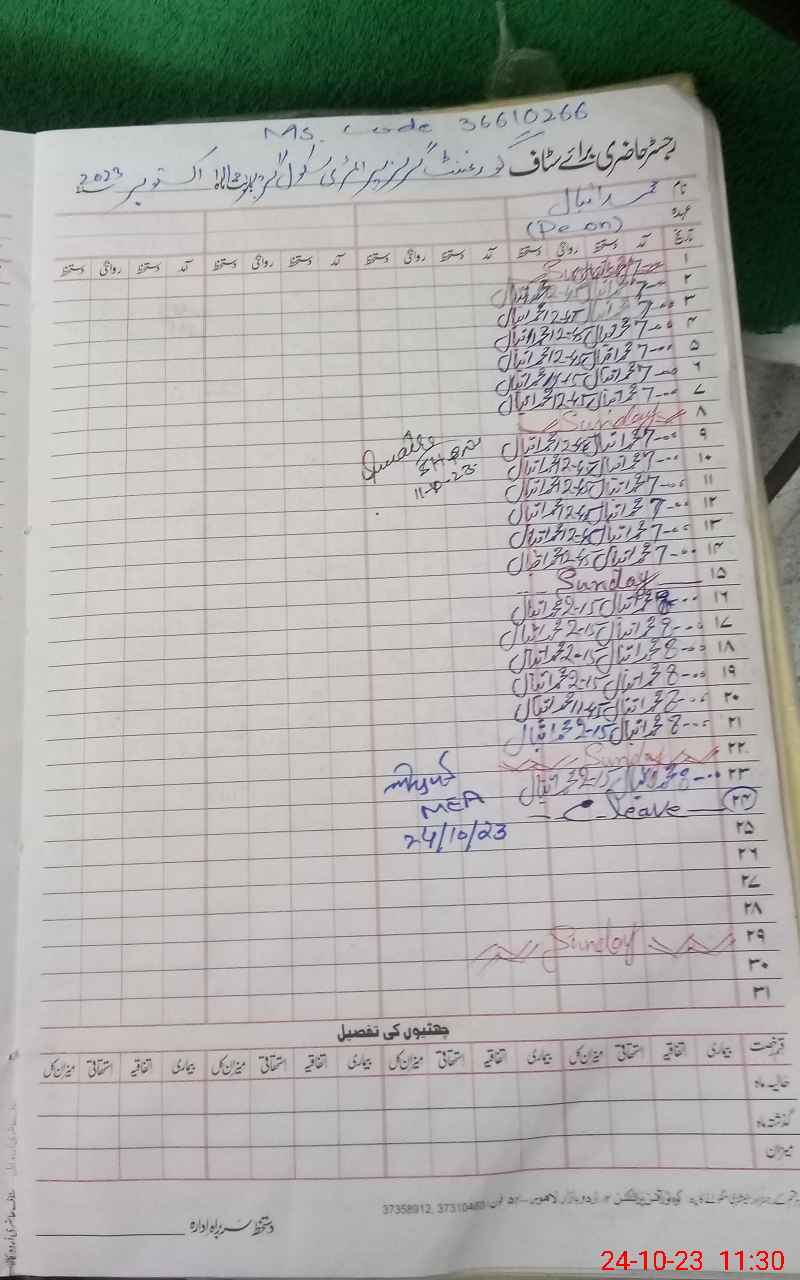 Ms. Code 36610266
رجسٹر حاضری برائے سٹاف گورنمنٹ گرلز پرائمری سکول اکتوبر 2023
نام محمد اقبال
عہدہ (Peon)
تاریخ آمد دستخط روانگی دستخط آمد دستخط روانگی دستخط آمد دستخط روانگی دستخط آمد دستخط روانگی دستخط
۱ Sunday
۲ 7-00 محمد اقبال 12-45 محمد اقبال
۳ 7-00 محمد اقبال 12-45 محمد اقبال
۴ 7-00 محمد اقبال 12-45 محمد اقبال
۵ 7-00 محمد اقبال 12-45 محمد اقبال
۶ 7-00 محمد اقبال محمد اقبال
۷ 7-00 محمد اقبال 12-45 محمد اقبال
۸ Sunday
۹ 7-00 محمد اقبال 12-45 محمد اقبال
۱۰ 7-00 محمد اقبال 12-45 محمد اقبال
۱۱ 7-00 محمد اقبال 12-45 محمد اقبال
11-10-23
۱۲ 7-00 محمد اقبال 12-45 محمد اقبال
۱۳ 7-00 محمد اقبال 12-45 محمد اقبال
۱۴ 7-00 محمد اقبال 12-45 محمد اقبال
۱۵ Sunday
۱۶ 8-00 محمد اقبال 2-15 محمد اقبال
۱۷ 8-00 محمد اقبال 2-15 محمد اقبال
۱۸ 8-00 محمد اقبال 2-15 محمد اقبال
۱۹ 8-00 محمد اقبال 2-15 محمد اقبال
۲۰ 8-00 محمد اقبال 11-45 محمد اقبال
۲۱ 8-00 محمد اقبال 2-15 محمد اقبال
۲۲ Sunday
۲۳ 8-00 محمد اقبال 2-15 محمد اقبال
۲۴ C-leave
MEA
24/10/23
۲۵
۲۶
۲۷
۲۸
۲۹ Sunday
۳۰
۳۱
چھٹیوں کی تفصیل
قسم رخصت بیماری اتفاقیہ استحقاقی میزان کل بیماری اتفاقیہ استحقاقی میزان کل بیماری اتفاقیہ استحقاقی میزان کل بیماری اتفاقیہ استحقاقی میزان کل
حالیہ ماہ
گذشتہ ماہ
میزان
اردو بازار لاہور فون: 37310460, 37358912
دستخط سربراہ ادارہ
24-10-23 11:30